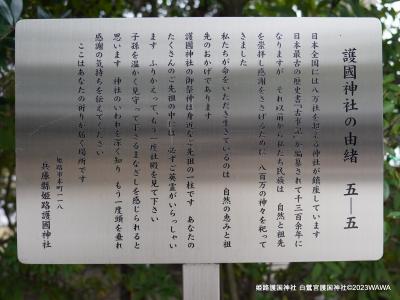 護國神社の由緒 五―五
日本全国には八万社を超える神社が鎮座しています
日本最古の歴史書「古事記」が編纂されて千三百余年に
なりますが それ以前から私たち民族は 自然と祖先
を崇拝し感謝をささげるために 八百万の神々を祀って
きました
私たちが命をいただき生きているのは 自然の恵みと祖
先のおかげであります
護國神社の御祭神は身近なご先祖の一柱です あなたの
たくさんのご先祖の中には 必ずご英霊がいらっしゃい
ます ふりかえって、もう一度社殿を見て下さい
子孫を温かく見守って下さるまなざしを感じられると
思います 神社のいわれを深く知り もう一度頭を垂れ
感謝の気持ちを伝えてください
ここはあなたの祈りが届く場所です
姫路市本町一一八
兵庫縣姫路護國神社
姫路護国神社 白鷺宮護国神社©2023WAWA